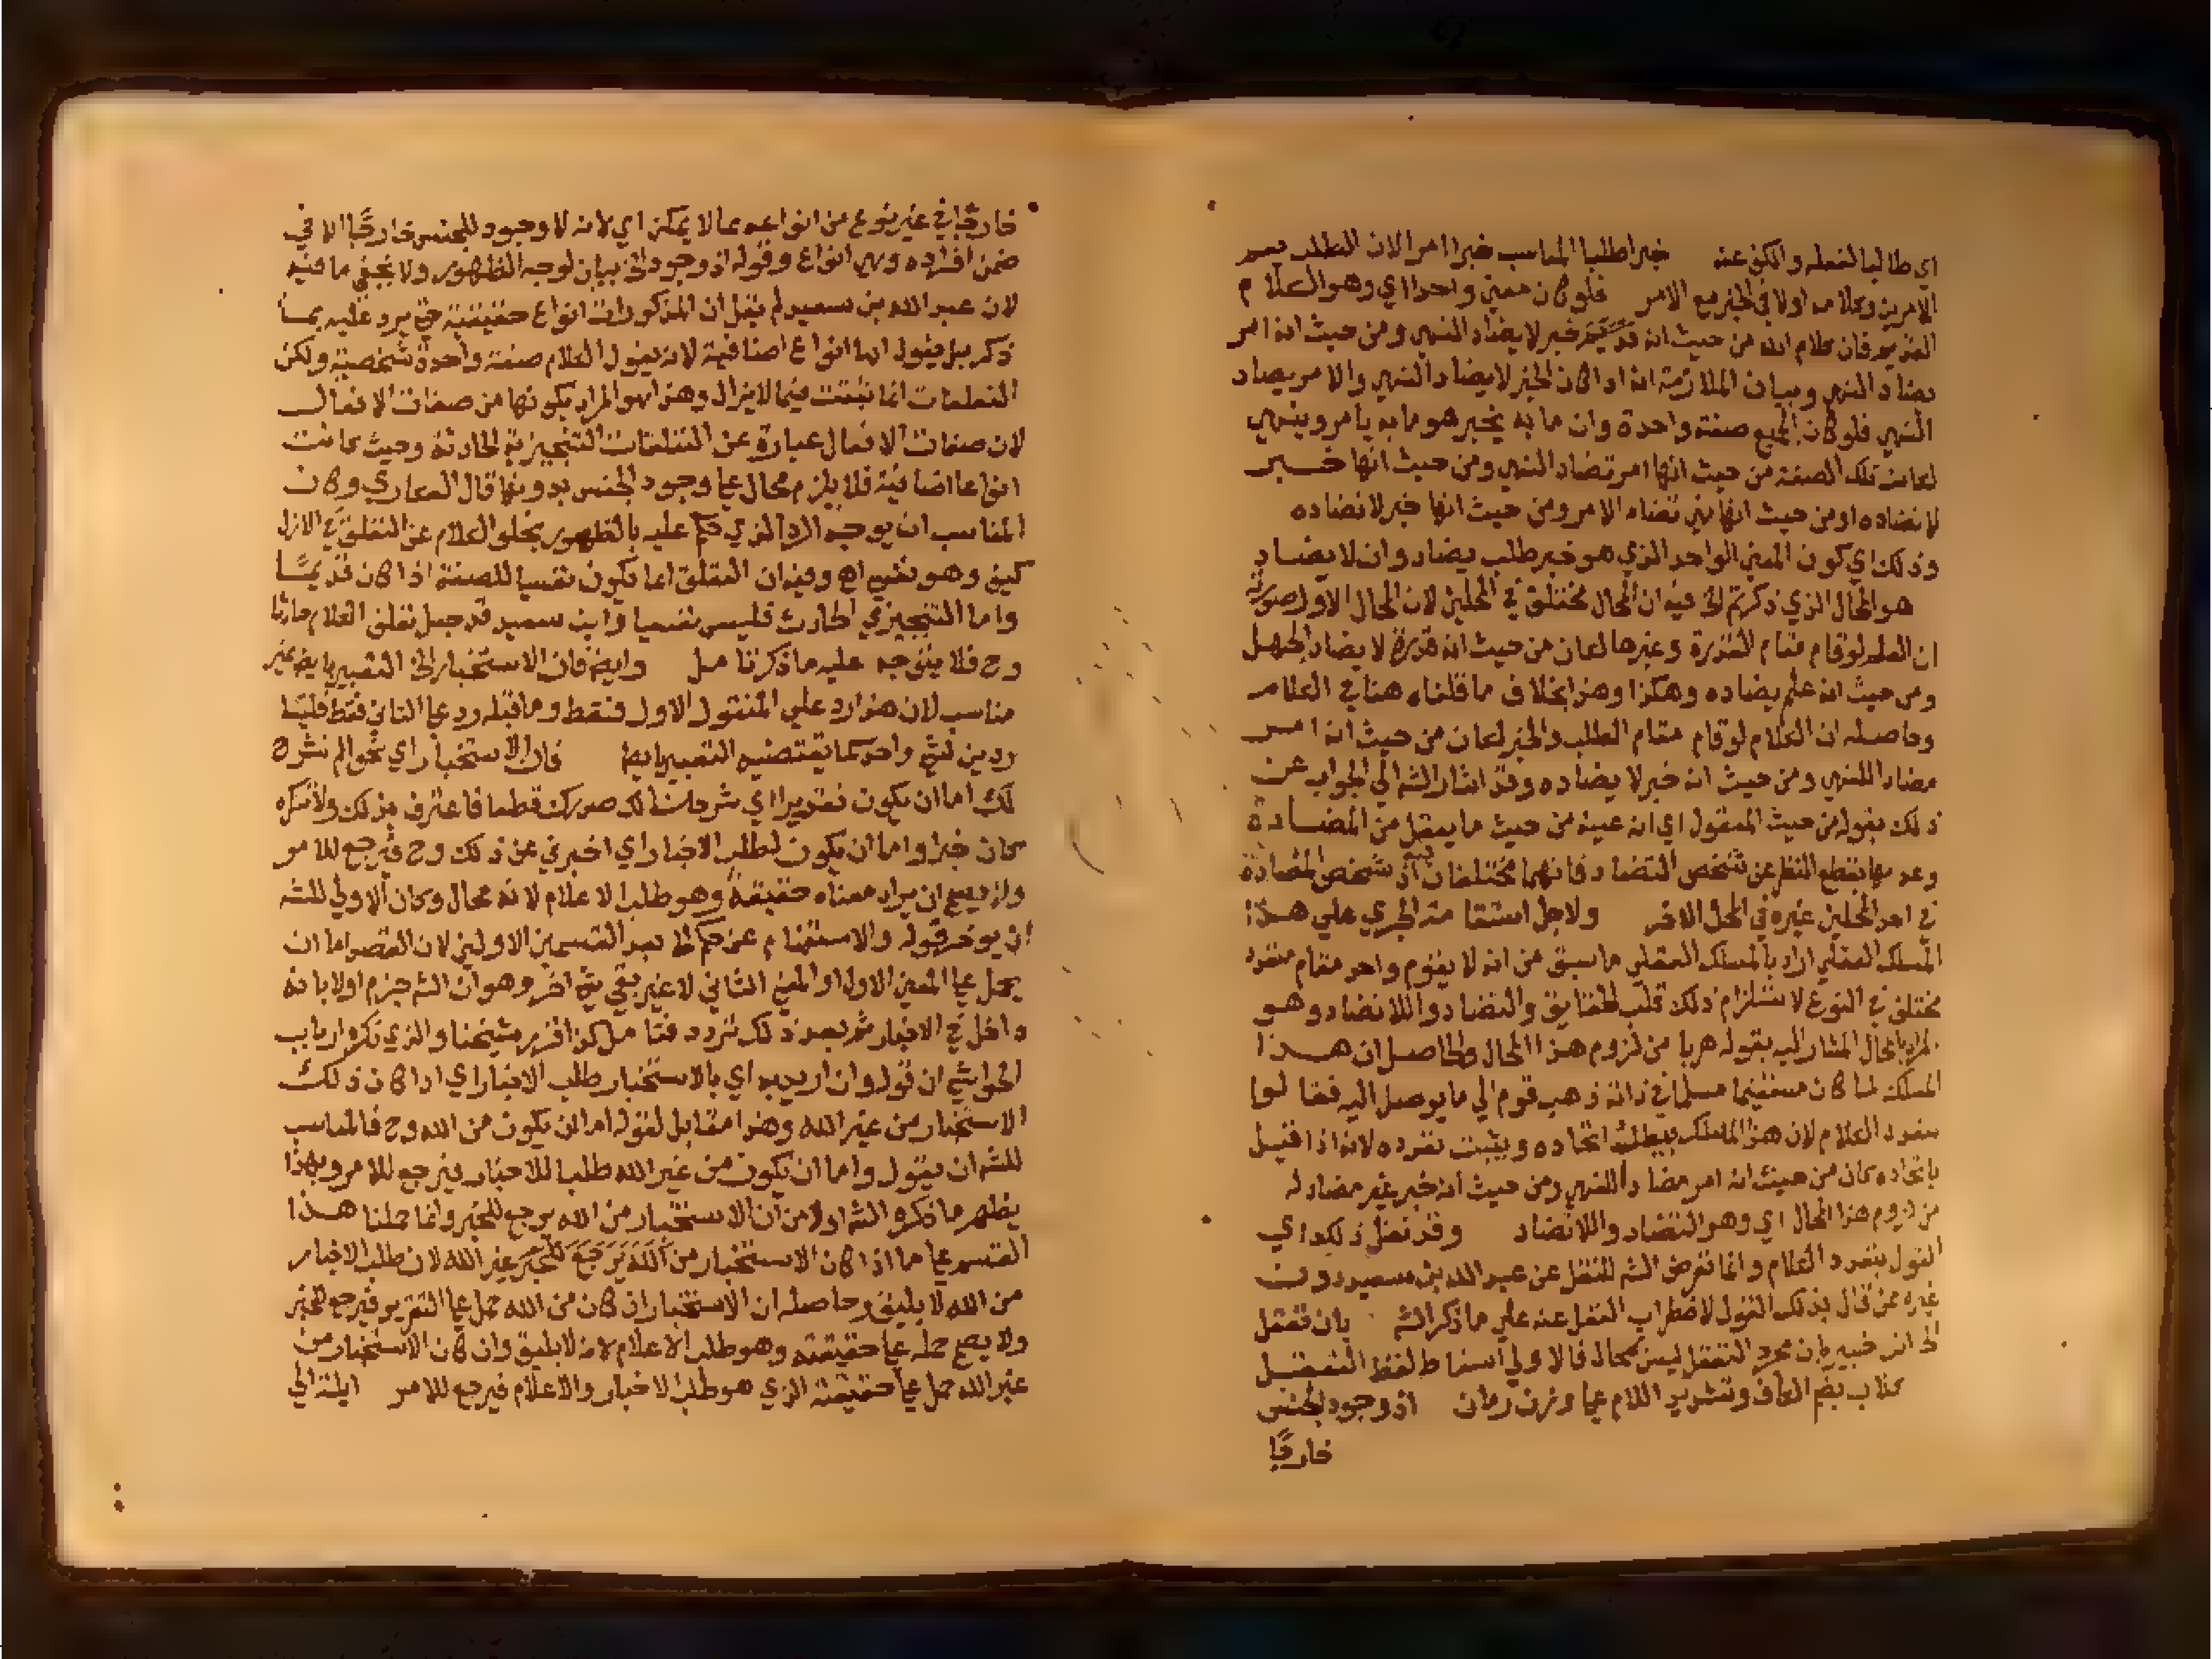 اي طالبا لفعله والكف عنه خبرا طلبا المناسب خبرا امرا لان الطلب يعم
الامرين وكلامه اولا في الخبر مع الامر فلو كان معني واحدا اي وهو الكلام
القديم فان كلام الله من حيث انه خبر لا يضاد النهي ومن حيث انه امر
يضاد النهي وبيان الملازمة انه اذا كان الخبر لا يضاد النهي والامر يضاد
النهي فلو كان الجميع صفة واحدة وان ما به يخبر هو ما به يامر وينهي
لكانت تلك الصفة من حيث انها امر تضاد النهي ومن حيث انها خبر
لا تضاده او من حيث انها نهي تضاد الامر ومن حيث انها خبر لا تضاده
وذلك اي كون المعني الواحد الذي هو خبر طلب يضاد وان لا يضاد
هو المحال الذي ذكرتم الخ فيه ان المحال مختلف في المحلين لان المحال الاول صورته
ان العلم لو قام مقام القدرة وغيرها لكان من حيث انه قدرة لا يضاد الجهل
ومن حيث انه علم يضاده وهكذا وهذا بخلاف ما قلناه هنا في الكلام
وحاصله ان الكلام لو قام مقام الطلب والخبر لكان من حيث انه امر
مضاد للنهي ومن حيث انه خبر لا يضاده وقد اشار الشه الي الجواب عن
ذلك بقوله من حيث المعقول اي انه عينه من حيث ما يعقل من المضادة
وعدمها بقطع النظر عن شخص التضاد فانهما مختلفان اذ شخص المضادة
في احد المحلين غيره في المحل الاخر ولاجل استقامة الجري علي هذا
المسلك العقلي اراد بالمسلك العقلي ما سبق من انه لا يقوم واحد مقام متعدد
مختلف في النوع لاستلزام ذلك قلب الحقايق والتضاد واللاتضاد وهو
المراد بالمحال المشار اليه بقوله هربا من لزوم هذا المحال والحاصل ان هذا
المسلك لما كان مستقيما مسلما في ذاته ذهب قوم الي ما يوصل اليه فقالوا
بتعدد الكلام لان هذا المسلك يبطل اتحاده ويثبت تعدده لانه اذا قيل
باتحاده كان من حيث انه امر مضادا للنهي ومن حيث انه خبر غير مضاد له
من لزوم هذا المحال اي وهو التضاد واللاتضاد وقد نقل ذلك اي
القول بتعدد الكلام وانما تعرض الشه للنقل عن عبد الله بن سعيد دون
غيره عن قال بذلك القول لاضطراب النقل عنه علي ما ذكر الشه بان تعقل
الخ انت خبير بان مجرد التعقل ليس بمحال فالاولي اسقاط لفظ التعقل
كلاب بضم الكاف وتشديد اللام علي وزن رمان اذ وجود الجنس
خارجًا
خارجًا في غير نوع من انواعه مما لا يمكن اي لانه لا وجود للجنس خارجًا الا في
ضمن افراده وهي انواع وقوله اذ وجود الخ بيان لوجه الظهور ولا يخفي ما فيه
لان عبد الله بن سعيد لم يقل ان المذكورات انواع حقيقية حتي يرد عليه بما
ذكر بل يقول انها انواع اضافية لانه يقول الكلام صفة واحدة شخصية ولكن
التعلقات انما تثبت فيما لا يزال وهذا هو المراد بكونها من صفات الافعال
لان صفات الافعال عبارة عن التعلقات التنجيزية الحادثة وحيث كانت
انواعا اضافية فلا يلزم محال علي وجود الجنس بدونها قال العكاري وكان
المناسب ان يوجه الرد الذي حكم عليه بالظهور بخلو الكلام عن التعلق في الازل
كيف وهو نفسي اهـ وفيه ان التعلق انما يكون نفسيا للصفة اذا كان قديمًا
واما التنجيزي الحادث فليس نفسيا وابن سعيد قد جعل تعلق الكلام حادثا
وح فلا يتوجه عليه ما ذكر تامل وايضا فان الاستخبار الخ التعبير بايضا غير
مناسب لان هذا رد علي المنقول الاول فقط وما قبله رد علي الثاني فقط فليسا
ردين لشي واحد كما يقتضيه التعبير بايضا فان الاستخبار اي نحو الم نشرح
لك اما ان يكون تقريرا اي شرحنا لك صدرك قطعا فاعترف بذلك ولا تنكره
كان خبرا واما ان يكون لطلب الاخبار اي اخبرني عن ذلك وح فيرجع للامر
ولا يصح ان يراد معناه حقيقة وهو طلب الاعلام لانه محال وكان الاولي للشه
ان يوخر قوله والاستفهام عن حكم الخ بعد القسمين الاولين لان القصد اما ان
يحمل علي المعني الاول او المعني الثاني لا غير بقي شي اخر وهو ان الشه جزم اولا بانه
داخل في الاخبار ثم بعد ذلك تردد فتامل كذا قرره شيخنا والذي ذكره ارباب
الحواشي ان قوله وان اريد به اي بالاستخبار طلب الاخبار اي اذا كان ذلك
الاستخبار من غير الله وهذا مقابل لقوله اما ان يكون من الله وح فالمناسب
للشه ان يقول واما ان يكون من غير الله طلبا للاخبار فيرجع للامر وبهذا
يظهر ما ذكره الشه اولا من ان الاستخبار من الله يرجع للخبر وانما حملنا هذا
القسم علي ما اذا كان الاستخبار من غير الله لان طلب الاخبار
من الله لا يليق وحاصله ان الاستخبار ان كان من الله حمل علي التقرير فيرجع للخبر
ولا يصح حمله علي حقيقته وهو طلب الاعلام لانه لا يليق وان كان الاستخبار من
غير الله حمل علي حقيقته الذي هو طلب الاخبار والاعلام فيرجع للامر ايلة الي